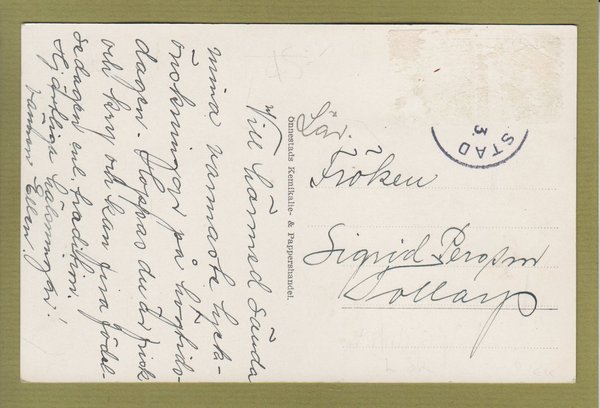 Vill härmed sända
mina varmaste lyck-
önskningar på högtids-
dagen. Hoppas du är frisk
och kry och kan fira födel-
sedagen enl tradition.
Hjärtliga hälsningar!
vännen Ellen.
Önnestads Kemikalie- & Pappershandel.
STAD
3
Fröken
Sigrid
Tollarp